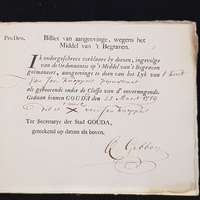 Pro Deo, Billiet van aangeevinge, wegens het
Middel van 't Begraven.
Ik ondergeschreve verklaare by deezen, ingevolge
van de Ordonnantie op 't Middel van 't Begraven
geëmaneert, aangeevinge te doen van het Lyk van 't kind
van Jan
als gehoorende onder de Classe van d' onvermogende.
Gedaan binnen GOUDA den 28 Maart 1779
dit is
Ter Secretarye der Stad GOUDA,
geteekend op datum als boven,